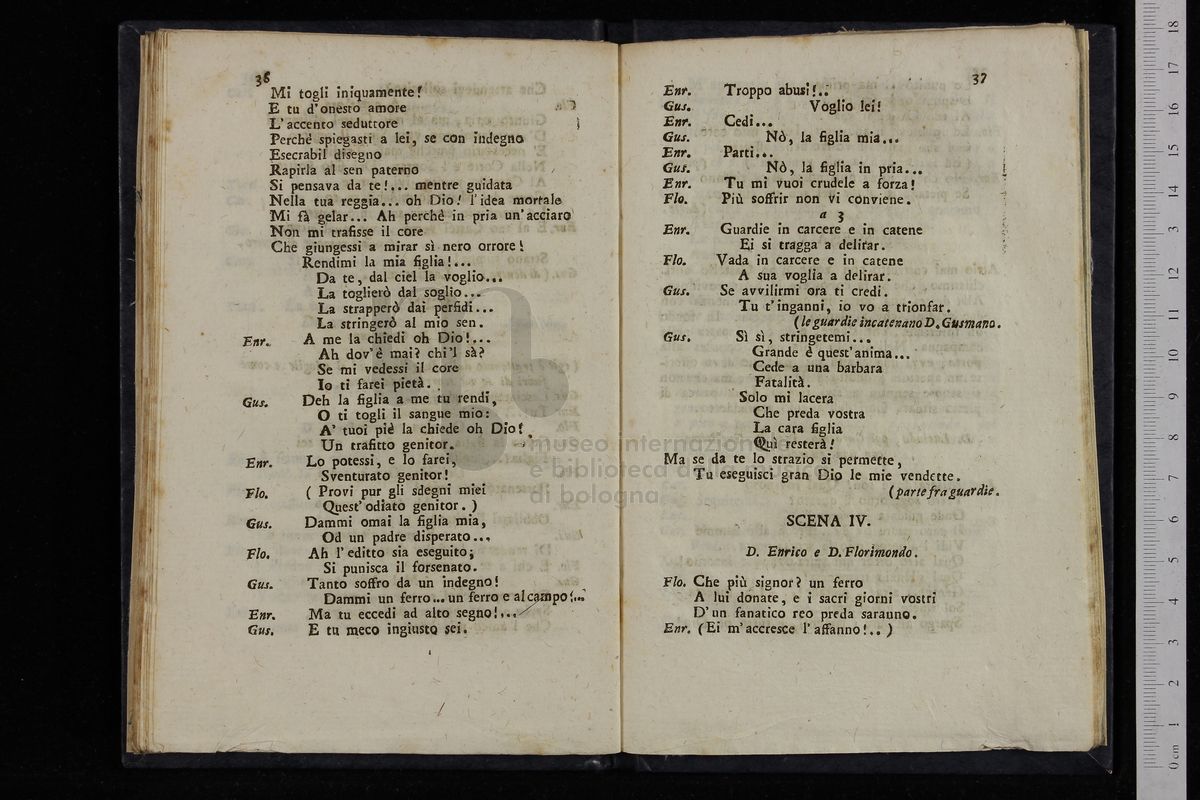 36
Mi togli iniquamente!
E tu d'onesto amore
L'accento seduttore
Perchè spiegasti a lei, se con indegno
Esecrabil disegno
Rapirla al sen paterno
Si pensava da te!... mentre guidata
Nella tua reggia... oh Dio! l'idea mortale
Mi fà gelar... Ah perchè in pria un'acciaro
Non mi trafisse il core
Che giungessi a mirar sì nero orrore!
Rendimi la mia figlia!...
Da te, dal ciel la voglio...
La toglierò dal soglio...
La strapperò dai perfidi...
La stringerò al mio sen.
Enr. A me la chiedi oh Dio!...
Ah dov'è mai? chi'l sà?
Se mi vedessi il core
Io ti farei pietà.
Gus. Deh la figlia a me tu rendi,
O ti togli il sangue mio:
A' tuoi piè la chiede oh Dio!
Un trafitto genitor.
Enr. Lo potessi, e lo farei,
Sventurato genitor!
Flo. ( Provi pur gli sdegni miei
Quest'odiato genitor. )
Gus. Dammi omai la figlia mia,
Od un padre disperato...
Flo. Ah l'editto sia eseguito;
Si punisca il forsenato.
Gus. Tanto soffro da un indegno!
Dammi un ferro... un ferro e al campo!...
Enr. Ma tu eccedi ad alto segno!...
Gus. E tu meco ingiusto sei.
37
Enr. Troppo abusi!..
Gus. Voglio lei!
Enr. Cedi...
Gus. Nò, la figlia mia...
Enr. Parti...
Gus. Nò, la figlia in pria...
Enr. Tu mi vuoi crudele a forza!
Flo. Più soffrir non vi conviene.
a 3
Enr. Guardie in carcere e in catene
Ei si tragga a delirar.
Flo. Vada in carcere e in catene
A sua voglia a delirar.
Gus. Se avvilirmi ora ti credi.
Tu t'inganni, io vo a trionfar.
(le guardie incatenano D. Gusmano.
Gus. Sì sì, stringetemi...
Grande è quest'anima...
Cede a una barbara
Fatalità.
Solo mi lacera
Che preda vostra
La cara figlia
Quì resterà!
Ma se da te lo strazio si permette,
Tu eseguisci gran Dio le mie vendette.
(parte fra guardie.
SCENA IV.
D. Enrico e D. Florimondo.
Flo. Che più signor? un ferro
A lui donate, e i sacri giorni vostri
D'un fanatico reo preda saranno.
Enr. (Ei m'accresce l'affanno!.. )
museo internazion
e biblioteca della musica
di bologna
0 cm 1 2 3 4 5 6 7 8 9 10 11 12 13 14 15 16 17 18